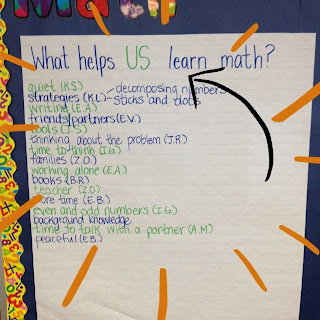 Math
What helps US learn math?
quiet (K.S.)
strategies (K.L.) - decomposing numbers
- sticks and dots
writing (E.A.)
friends/partners (E.V.)
tools (J.S.)
thinking about the problem (J.R.)
time to think (I.G.)
families (Z.O.)
working alone (E.A.)
books (B.R.)
teacher (Z.O.)
more time (E.B.)
even and odd numbers (I.G.)
background knowledge
time to talk with a partner (A.M.)
peaceful (E.B.)